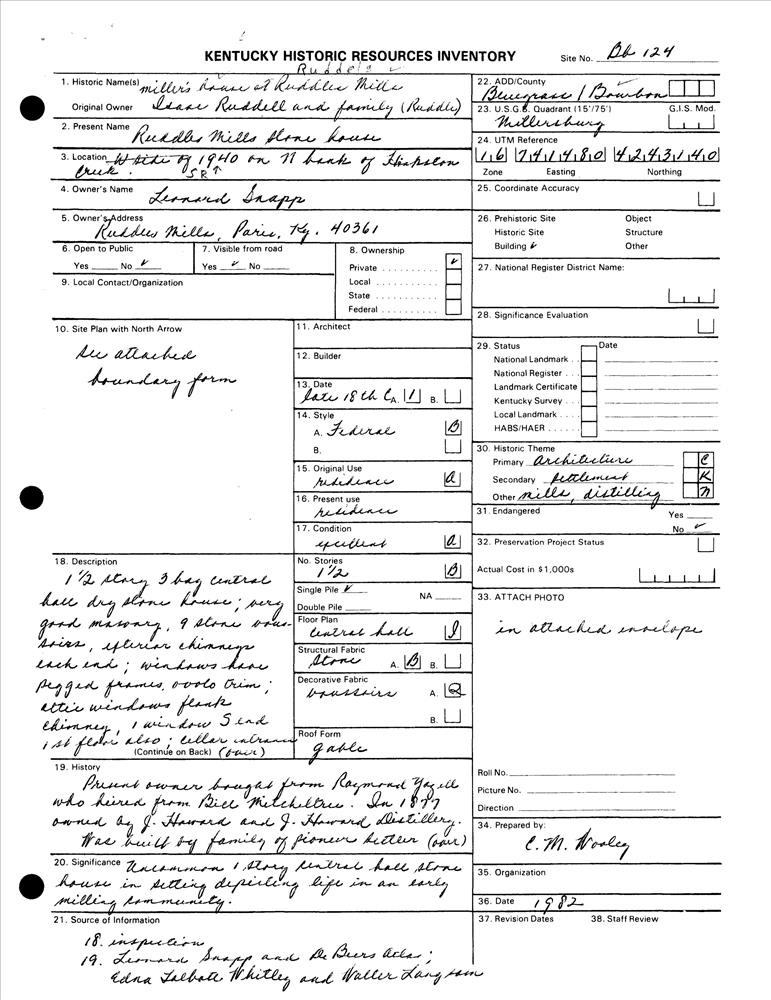 KENTUCKY HISTORIC RESOURCES INVENTORY
Site No. Bb 124
Ruddels
1. Historic Name(s) miller's house at Ruddles Mills
Original Owner Isaac Ruddell and family (Ruddle)
2. Present Name Ruddles Mills Stone house
3. Location W side of 1940 on N bank of Hinkston
Creek. SR ↑
4. Owner's Name Leonard Snapp
5. Owner's Address
Ruddles Mills, Paris, Ky. 40361
6. Open to Public
Yes No ✓
7. Visible from road
Yes ✓ No
8. Ownership
Private ✓
Local
State
Federal
9. Local Contact/Organization
10. Site Plan with North Arrow
see attached
boundary form
11. Architect
12. Builder
13. Date
late 18th C A. 1 B.
14. Style
A. Federal B
B.
15. Original Use
residence a
16. Present use
residence
17. Condition
excellent a
No. Stories
1 1/2 B
Single Pile ✓ NA
Double Pile
Floor Plan
central hall J
Structural Fabric
stone A. B B.
Decorative Fabric
voussoirs A. Q
B.
Roof Form
gable
18. Description
1 1/2 story 3 bay central
hall dry stone house; very
good masonry, 9 stone vous-
soirs, exterior chimneys
each end; windows have
pegged frames, ovolo trim;
attic windows flank
chimney, 1 window S end
1st floor also; cellar entrance
(Continue on Back) (over)
19. History
Present owner bought from Raymond Yazell
who heired from Bill Mitcheltree. In 1877
owned by J. Howard and J. Howard Distillery.
Was built by family of pioneer settler (over)
20. Significance Uncommon 1 story central hall stone
house in setting depicting life in an early
milling community.
21. Source of Information
18. inspection
19. Leonard Snapp and De Beers Atlas;
Edna Talbott Whitley and Walter Langsam
22. ADD/County
Bluegrass / Bourbon
23. U.S.G.S. Quadrant (15'/75') G.I.S. Mod.
Millersburg
24. UTM Reference
16 741480 4243140
Zone Easting Northing
25. Coordinate Accuracy
26. Prehistoric Site Object
Historic Site Structure
Building ✓ Other
27. National Register District Name:
28. Significance Evaluation
29. Status Date
National Landmark
National Register
Landmark Certificate
Kentucky Survey
Local Landmark
HABS/HAER
30. Historic Theme
Primary architecture C
Secondary settlement K
Other mills, distilling n
31. Endangered Yes
No ✓
32. Preservation Project Status
Actual Cost in $1,000s
33. ATTACH PHOTO
in attached envelope
Roll No.
Picture No.
Direction
34. Prepared by:
C. M. Wooley
35. Organization
36. Date 1982
37. Revision Dates 38. Staff Review